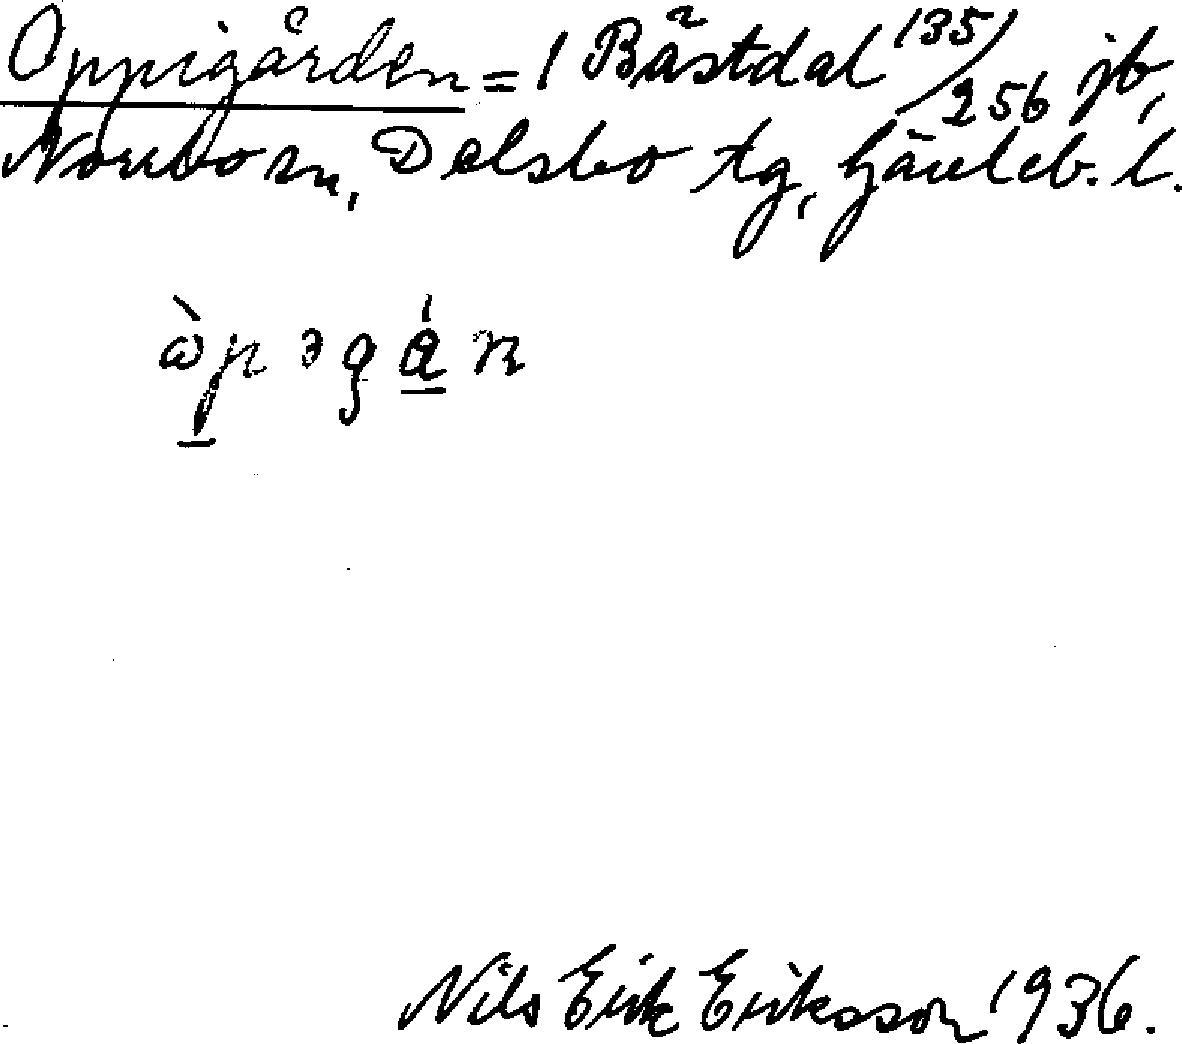 Oppigården = 1 Bästdal 135/256 jb,
Norrbo sn, Delsbo tg, Gävleb. l.
ὼpəgá̱n
Nils Erik Eriksson 1936.